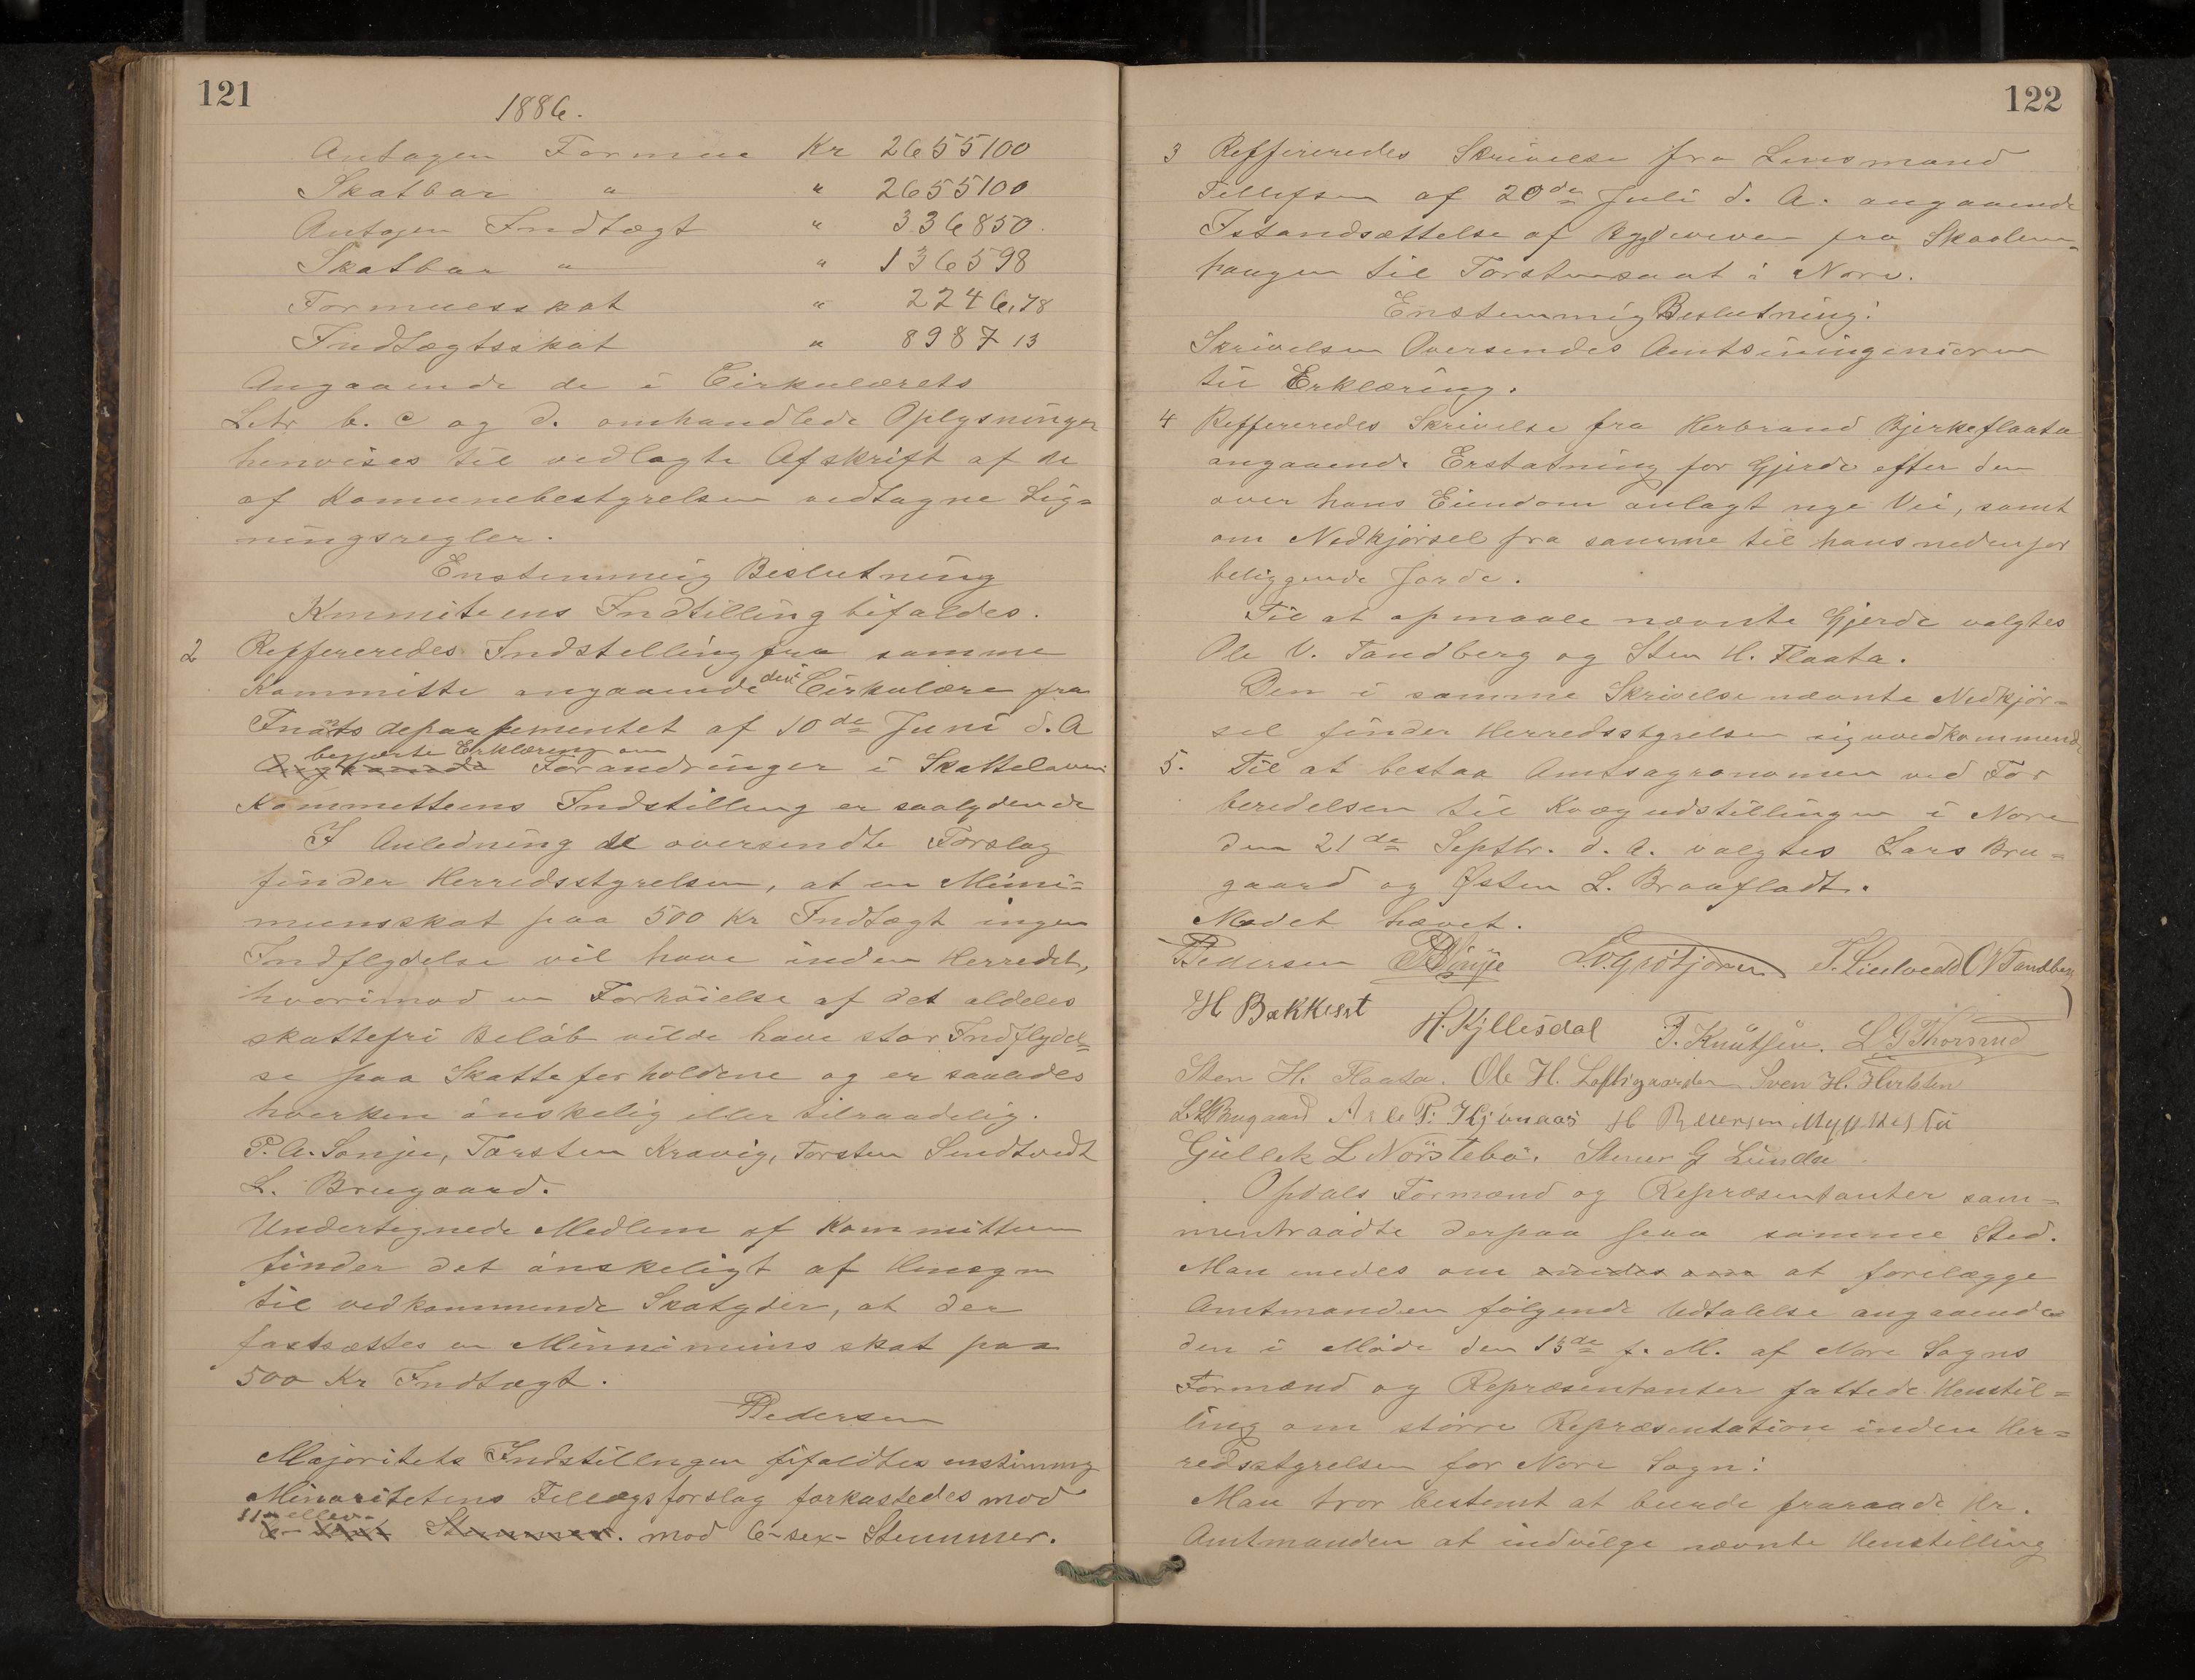 121
1886.
Antagen Formue Kr 2655100
Skatbar " " 2655100
Antagen Indtægt " 336850.
Skatbar " " 136598
Formuesskat " 2246,78
Indtægtsskat " 8987 13
Angaaende de i Cirkulærets
Litr b. c og d. omhandlede Oplysninger
henvises til vedlagte Afskrift af de
af Komunebestyrelsen vedtagne Lig=
ningsregler.
Enstemmig Beslutning
Kmmiteens Indtilling bifaldes.
2 Reffereredes Indstelling fra samme
Kommitte angaaende det Cirkulære fra
af 10de Juni d. A
begjærte Erklæring om
Forandringer i Skatteloven
Kommitteens Indstilling er saalydende
I Anledning de oversendte Forslag
finder Herredsstyrelsen, at en Mini=
mumsskat paa 500 Kr Indtægt ingen
Indflydelse vil have inden Herredet,
hvorimod en Forhöielse af det aldeles
skattefri Beløb vilde have stor Indflydel=
se paa Skatteforholdene og er saaledes
hverken önskelig eller tilraadelig.
P. A. Sønju, Torsten Kravig, Torsten Sendtvedt
L. Brugaard.
Undertegnede Medlem af Kommitteen
finder det önskeligt af Hensyn
til vedkommende Skatyder, at der
fastsættes en Minnimums skat paa
500 Kr Indtægt.
Pedersen
Majoritets Indstillngen bifaldtes enstimmig
Minoritetens Tillægsforslag forkastedes mod
11 - ellev-
Stemmer. mod 6-sex- Stemmer.
122
3 Reffereredes Skrivelse fra Lensmand
Tellefsen af 20de Juli d. A. angaaende
Istandsættelse af Bygdeveien fra Skaalem=
haugen til Torstensaat i Nore.
Enstemmig Beslutning:
Skrivelsen Oversendes Amtsiningeniøren
til Erklæring.
4 Reffereredes Skrivelse fra Herbrand Bjerkeflaata
angaaende Erstatning for Gjerde efter den
over hans Eiendom anlagt nye Vei, samt
om Nedkjørsel fra samme til hans nedenfor
beliggende Jorde.
Til at opmaale nævnte Gjerde valgtes
Ole V. Tandberg og Sten H. Flaata.
Den i samme Skrivelse nævnte Nedkjör=
sel finder Herredsstyrelsen siguvedkommende
5. Til at bestaa Amtsagronomen ved For
beredelsen til Kvægudstillingen i Nore
den 21de Septbr. d. A. valgtes Lars Bru=
gaard og Østen L. Braafladt.
Mødet hævet.
Pedersen T. Lietvedt O V Tandberg
H Bækkeset H. Kjillesdal T. Knutsen. L G Thorsrud
Sten H. Flaata. Ole H. Loftsgaarden Sven H.
L. L. Brugaard Asle P. Kjönaas H Pettersen
Gullek L Nörstebö. Stener G Lunde
Opdals Formænd og Repræsentanter sam=
mentraadte derpaa paa samme Sted.
Man enedes om enedes om at forelægge
Amtmanden følgende Udtalelse angaaende
den i Møde den 13de f. M. af Nore Sogns
Formænd og Repræsentanter fattede Henstil=
ling om större Repræsentation inden Her=
redsstyrelsen for Nore Sogn:
Man tror bestemt at burde fraraade Hr.
Amtmanden at indvilge nævnte Henstilling